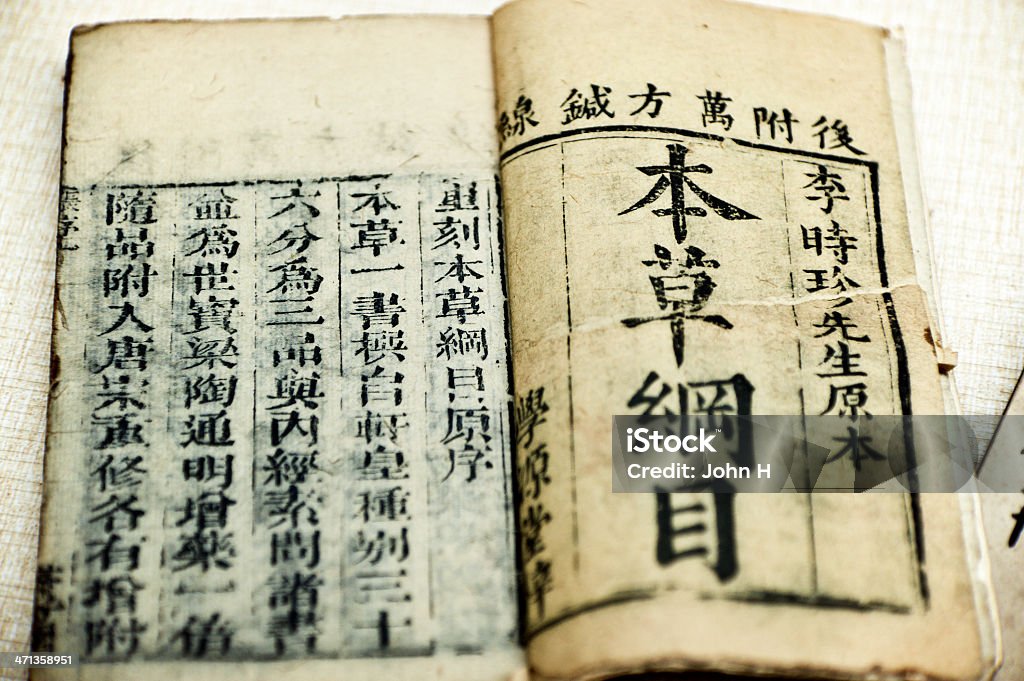 後附萬方鍼線
李時珍先生原本
本草綱目
學源堂梓
重刻本草綱目原序
本草一書撰自軒皇種別三十
六分為三品與內經素問諸書
並為世寶梁陶通明增藥一倍
隨品附入唐宋重修各有增附
iStock™
Credit: John H
471358951